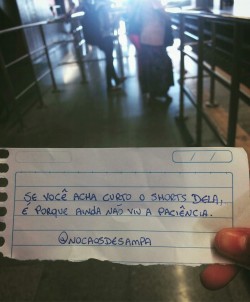 SE VOCÊ ACHA CURTO O SHORTS DELA,
É PORQUE AINDA NÃO VIU A PACIÊNCIA.
@NOCAOSDESAMPA